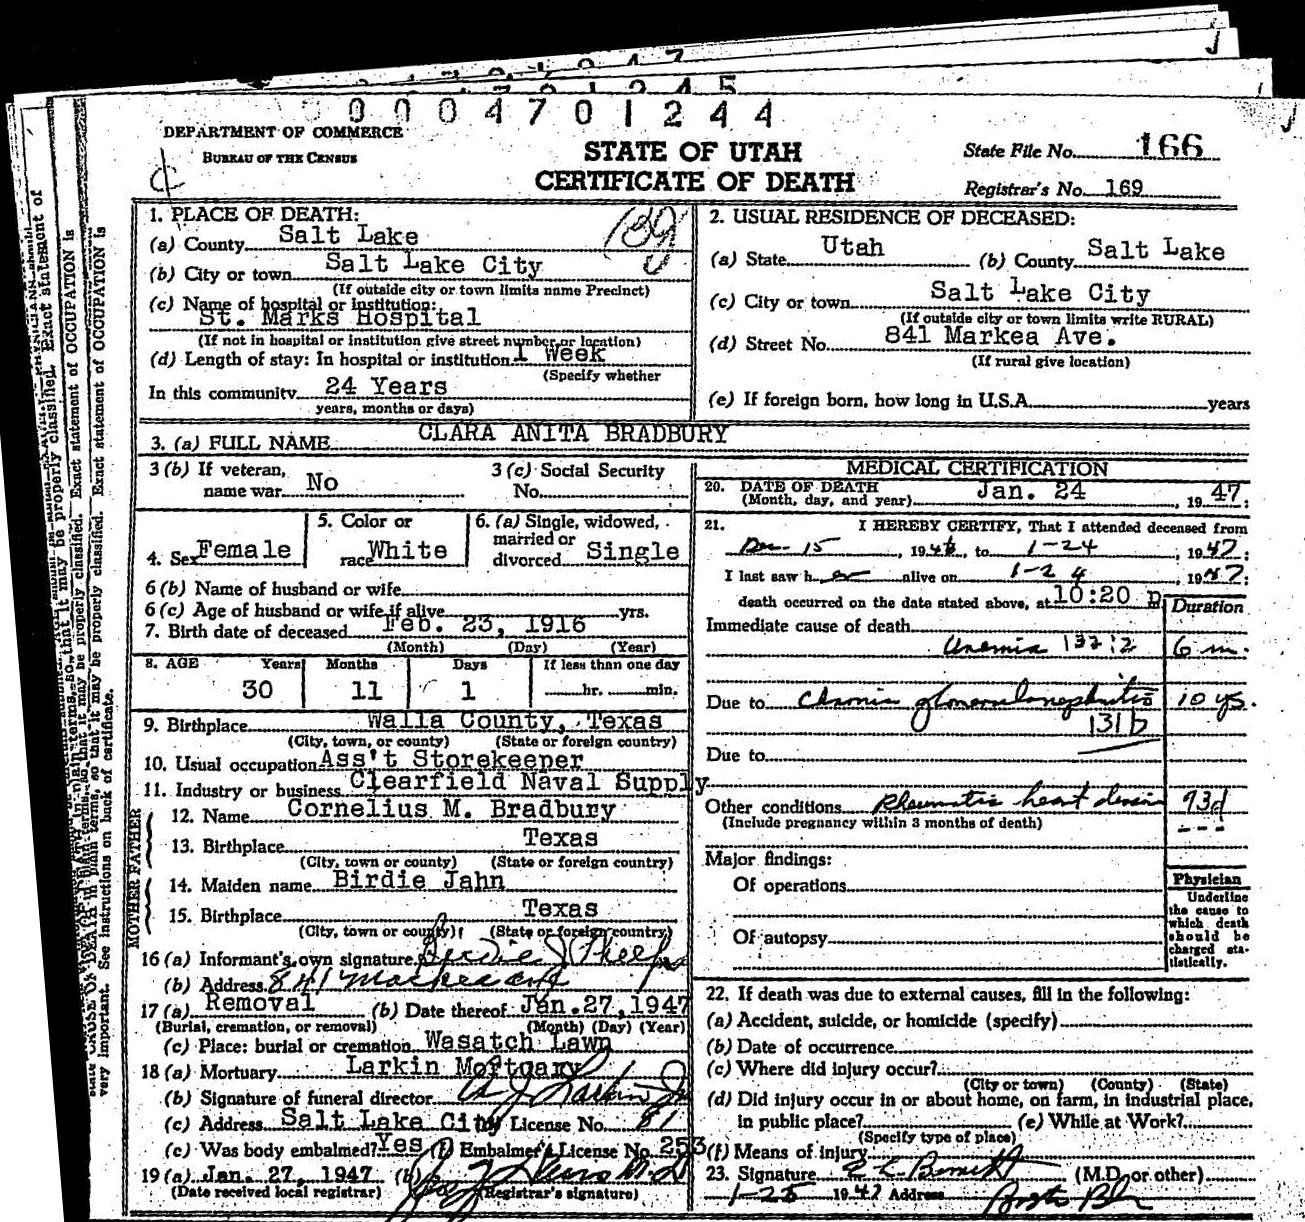 0 0 0 4 7 0 1 2 4 4
DEPARTMENT OF COMMERCE
BUREAU OF THE CENSUS
STATE OF UTAH
CERTIFICATE OF DEATH
State File No. 166
Registrar's No. 169
1. PLACE OF DEATH:
(a) County Salt Lake
(b) City or town Salt Lake City
(If outside city or town limits name Precinct)
(c) Name of hospital or institution:
St. Marks Hospital
(If not in hospital or institution give street number or location)
(d) Length of stay: In hospital or institution 1 Week
(Specify whether
In this community 24 Years
years, months or days)
2. USUAL RESIDENCE OF DECEASED:
(a) State Utah (b) County Salt Lake
(c) City or town Salt Lake City
(If outside city or town limits write RURAL)
(d) Street No. 841 Markea Ave.
(If rural give location)
(e) If foreign born, how long in U.S.A. years
3. (a) FULL NAME CLARA ANITA BRADBURY
3 (b) If veteran, name war No
3 (c) Social Security No.
4. Sex Female
5. Color or race White
6. (a) Single, widowed, married or divorced Single
6 (b) Name of husband or wife
6 (c) Age of husband or wife if alive yrs.
7. Birth date of deceased Feb. 23, 1916
(Month) (Day) (Year)
8. AGE Years Months Days If less than one day
30 11 1 hr. min.
9. Birthplace Walla County, Texas
(City, town, or county) (State or foreign country)
10. Usual occupation Ass't Storekeeper
11. Industry or business Clearfield Naval Supply
FATHER
12. Name Cornelius M. Bradbury
13. Birthplace Texas
(City, town or county) (State or foreign country)
MOTHER
14. Maiden name Birdie Jahn
15. Birthplace Texas
(City, town or county) (State or foreign country)
16 (a) Informant's own signature Birdie J Phelps
(b) Address 841 Markea Ave
17 (a) Removal (b) Date thereof Jan. 27, 1947
(Burial, cremation, or removal) (Month) (Day) (Year)
(c) Place: burial or cremation Wasatch Lawn
18 (a) Mortuary Larkin Mortuary
(b) Signature of funeral director
(c) Address Salt Lake City License No. 81
(c) Was body embalmed? Yes (f) Embalmer's License No. 253
19 (a) Jan. 27, 1947 (b)
(Date received local registrar) (Registrar's signature)
MEDICAL CERTIFICATION
20. DATE OF DEATH
(Month, day, and year) Jan. 24, 1947:
21. I HEREBY CERTIFY, That I attended deceased from
Dec. 15, 1946, to 1-24, 1947:
I last saw her alive on 1-24, 1947:
death occurred on the date stated above, at 10:20 P
Duration
Immediate cause of death
Uremia 132:2 6 m.
Due to Chronic glomerulonephritis 10 ys.
131b
Due to
Other conditions Rheumatic heart disease 93d
(Include pregnancy within 3 months of death)
Major findings:
Of operations
Of autopsy
Physician
Underline
the cause to
which death
should be
charged sta-
tistically.
22. If death was due to external causes, fill in the following:
(a) Accident, suicide, or homicide (specify)
(b) Date of occurrence
(c) Where did injury occur?
(City or town) (County) (State)
(d) Did injury occur in or about home, on farm, in industrial place,
in public place? (e) While at Work?
(Specify type of place)
(f) Means of injury
23. Signature (M.D. or other)
1-25 1947 Address